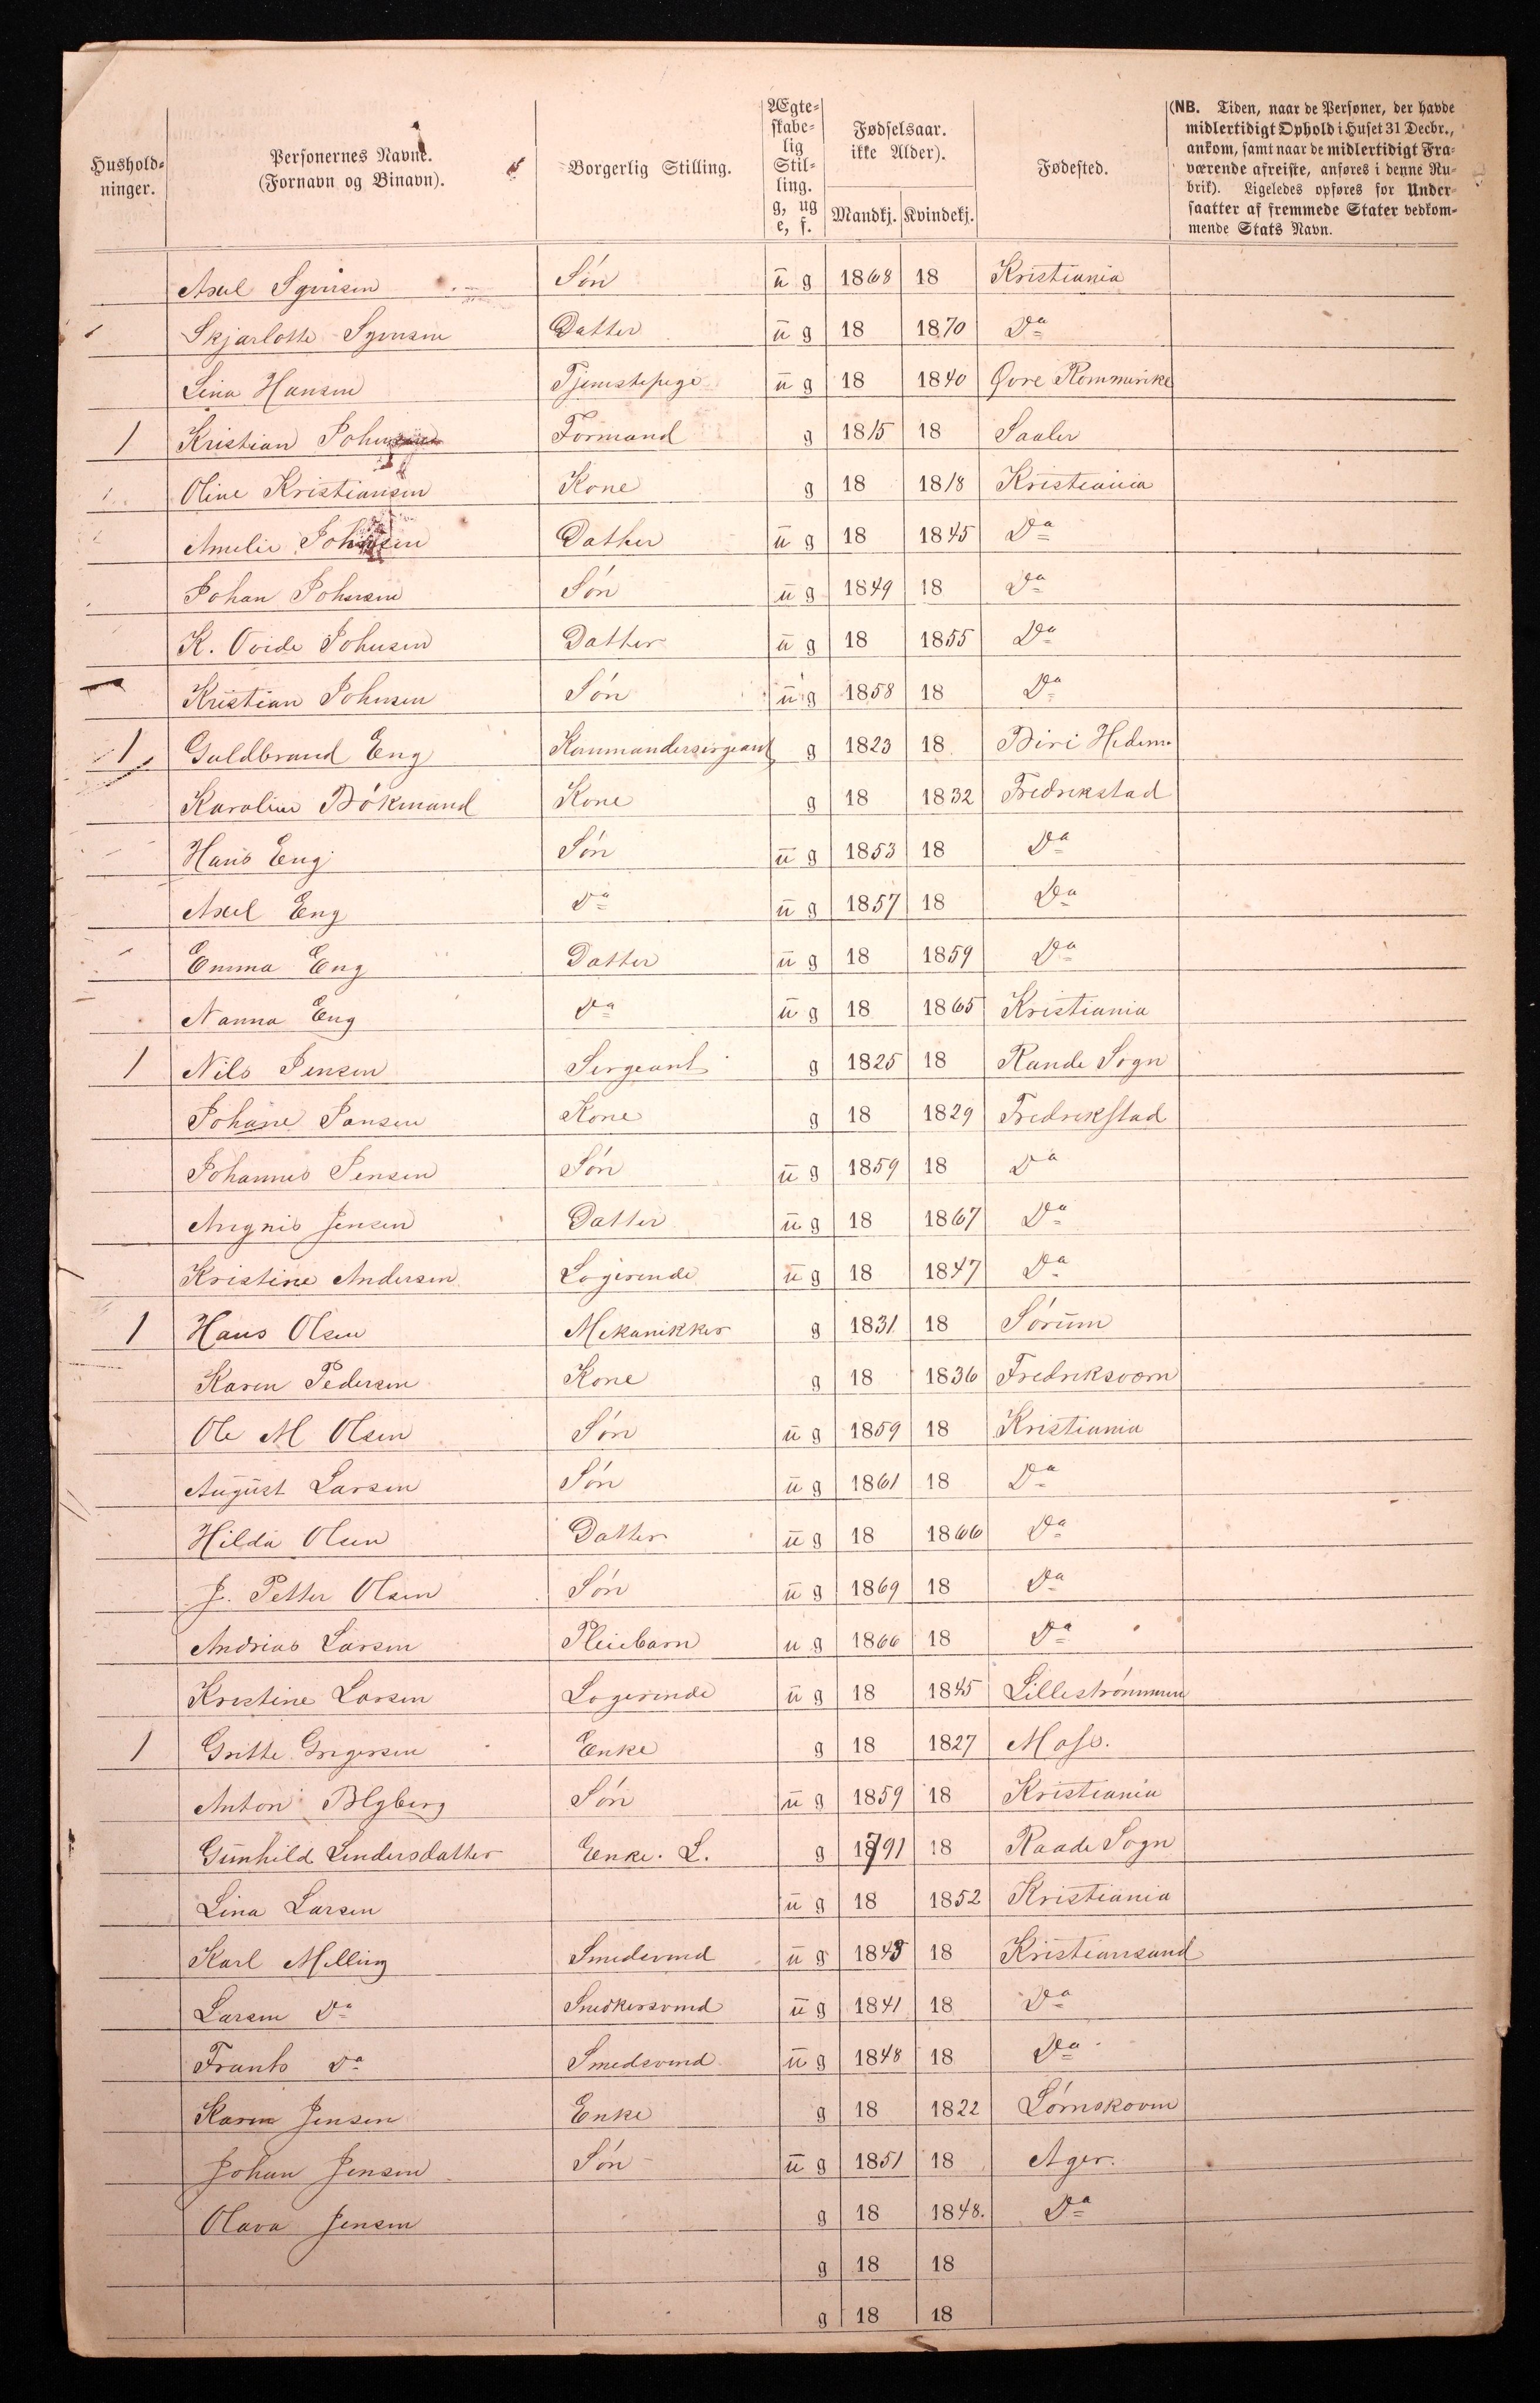 Hushold-
ninger.
Personernes Navne.
(Fornavn og Binavn).
Borgerlig Stilling.
Ægte-
skabe-
lig
Stil-
ling.
g, ug
e, f.
Fødselsaar.
ikke Alder).
Mandkj. Kvindekj.
Fødested.
(NB. Tiden, naar de Personer, der havde
midlertidigt Ophold i Huset 31 Decbr.,
ankom, samt naar de midlertidigt Fra-
værende afreiste, anføres i denne Ru-
brik). Ligeledes opføres for Under-
saatter af fremmede Stater vedkom-
mende Stats Navn.
Axel Søn ug 1868 18 Kristiania
Skjarlotte Datter ug 18 1870 Da
Lina Hansen Tjenstepige ug 18 1840 Øvre Rommerike
1 Kristian Johnsen Formand g 1815 18 Saaler
Oline Kristiansen Kone g 18 1818 Kristiania
Amelie Johnsen Datter ug 18 1845 Da
Johan Johnsen Søn ug 1849 18 Da
K. Ovide Johnsen Datter ug 18 1855 Da
Kristian Johnsen Søn ug 1858 18 Da
1 Guldbrand Eng Kommandersergeant g 1823 18 Biri Hedem.
Karoline Bökmand Kone g 18 1832 Fredrikstad
Hans Eng Søn ug 1853 18 Da
Axel Eng Da ug 1857 18 Da
Emma Eng Datter ug 18 1859 Da
Nanna Eng Da ug 18 1865 Kristiania
1 Nils Jensen Sergeant g 1825 18 Rande Sogn
Johane Jansen Kone g 18 1829 Fredrikstad
Johannes Jensen Søn ug 1859 18 Da
Angnis Jensen Datter ug 18 1867 Da
Kristine Andersen Logerende ug 18 1847 Da
1 Hans Olsen Mekanikker g 1831 18 Sørum
Karen Pedersen Kone g 18 1836 Fredriksværn
Ole M Olsen Søn ug 1859 18 Kristiania
August Larsen Søn ug 1861 18 Da
Hilda Olsen Datter ug 18 1866 Da
J. Petter Olsen Søn ug 1869 18 Da
Andrias Larsen Pleiebarn ug 1866 18 Da
Kristine Larsen Logerende ug 18 1845 Lillestrømmen
1 Gritte Grigersen Enke g 18 1827 Moss.
Anton Blyberg Søn ug 1859 18 Kristiania
Gunhild Lendersdatter Enke. L. g 1791 18 Raade Sogn
Lina Larsen ug 18 1852 Kristiania
Karl Melling Smedsvend ug 1843 18 Kristiansand
Larsen Da Snedkersvend ug 1841 18 Da
Frants Da Smedsvend ug 1848 18 Da
Karen Jensen Enke g 18 1822 Lørnskoven
Johan Jensen Søn ug 1851 18 Ager.
Olava Jensen g 18 1848. Da
g 18 18
g 18 18